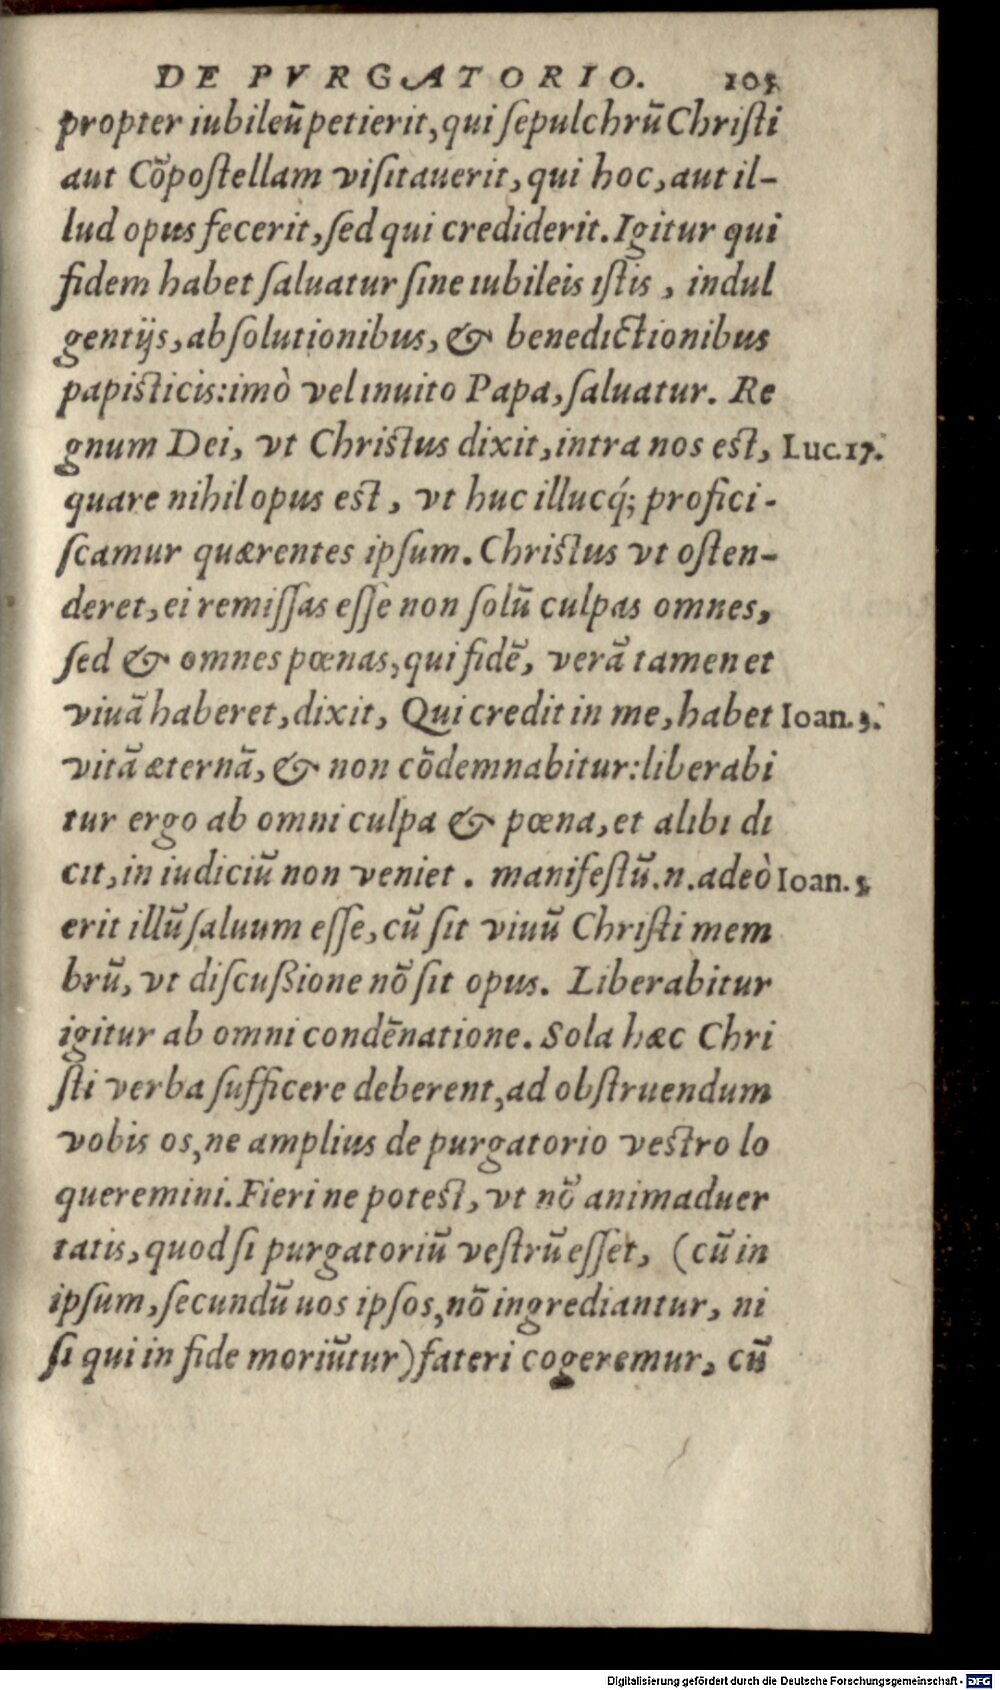 DE PVRGATORIO. 105
propter iubileũ petierit, qui ſepulchrũ Chriſti
aut Cõpoſtellam viſitauerit, qui hoc, aut il-
lud opus fecerit, ſed qui crediderit. Igitur qui
fidem habet ſaluatur ſine iubileis iſtis, indul
gentijs, abſolutionibus, & benedictionibus
papiſticis: imò vel inuito Papa, ſaluatur. Re
gnum Dei, vt Chriſtus dixit, intra nos eſt, Luc. 17.
quare nihil opus eſt, vt huc illucq́; profici-
ſcamur quærentes ipſum. Chriſtus vt oſten-
deret, ei remiſſas eſſe non ſolũ culpas omnes,
ſed & omnes pœnas, qui fidẽ, verã tamen et
viuã haberet, dixit, Qui credit in me, habet Ioan. 3.
vitã æternã, & non cõdemnabitur: liberabi
tur ergo ab omni culpa & pœna, et alibi di
cit, in iudiciũ non veniet. manifeſtũ .n. adeò Ioan. 5
erit illũ ſaluum eſſe, cũ ſit viuũ Chriſti mem
brũ, vt diſcuſsione nõ ſit opus. Liberabitur
igitur ab omni condẽnatione. Sola hæc Chri
ſti verba ſufficere deberent, ad obſtruendum
vobis os, ne amplius de purgatorio veſtro lo
queremini. Fieri ne poteſt, vt nõ animaduer
tatis, quod ſi purgatoriũ veſtrũ eſſet, (cũ in
ipſum, ſecundũ uos ipſos, nõ ingrediantur, ni
ſi qui in fide moriũtur) fateri cogeremur, cũ
Digitalisierung gefördert durch die Deutsche Forschungsgemeinschaft - DFG